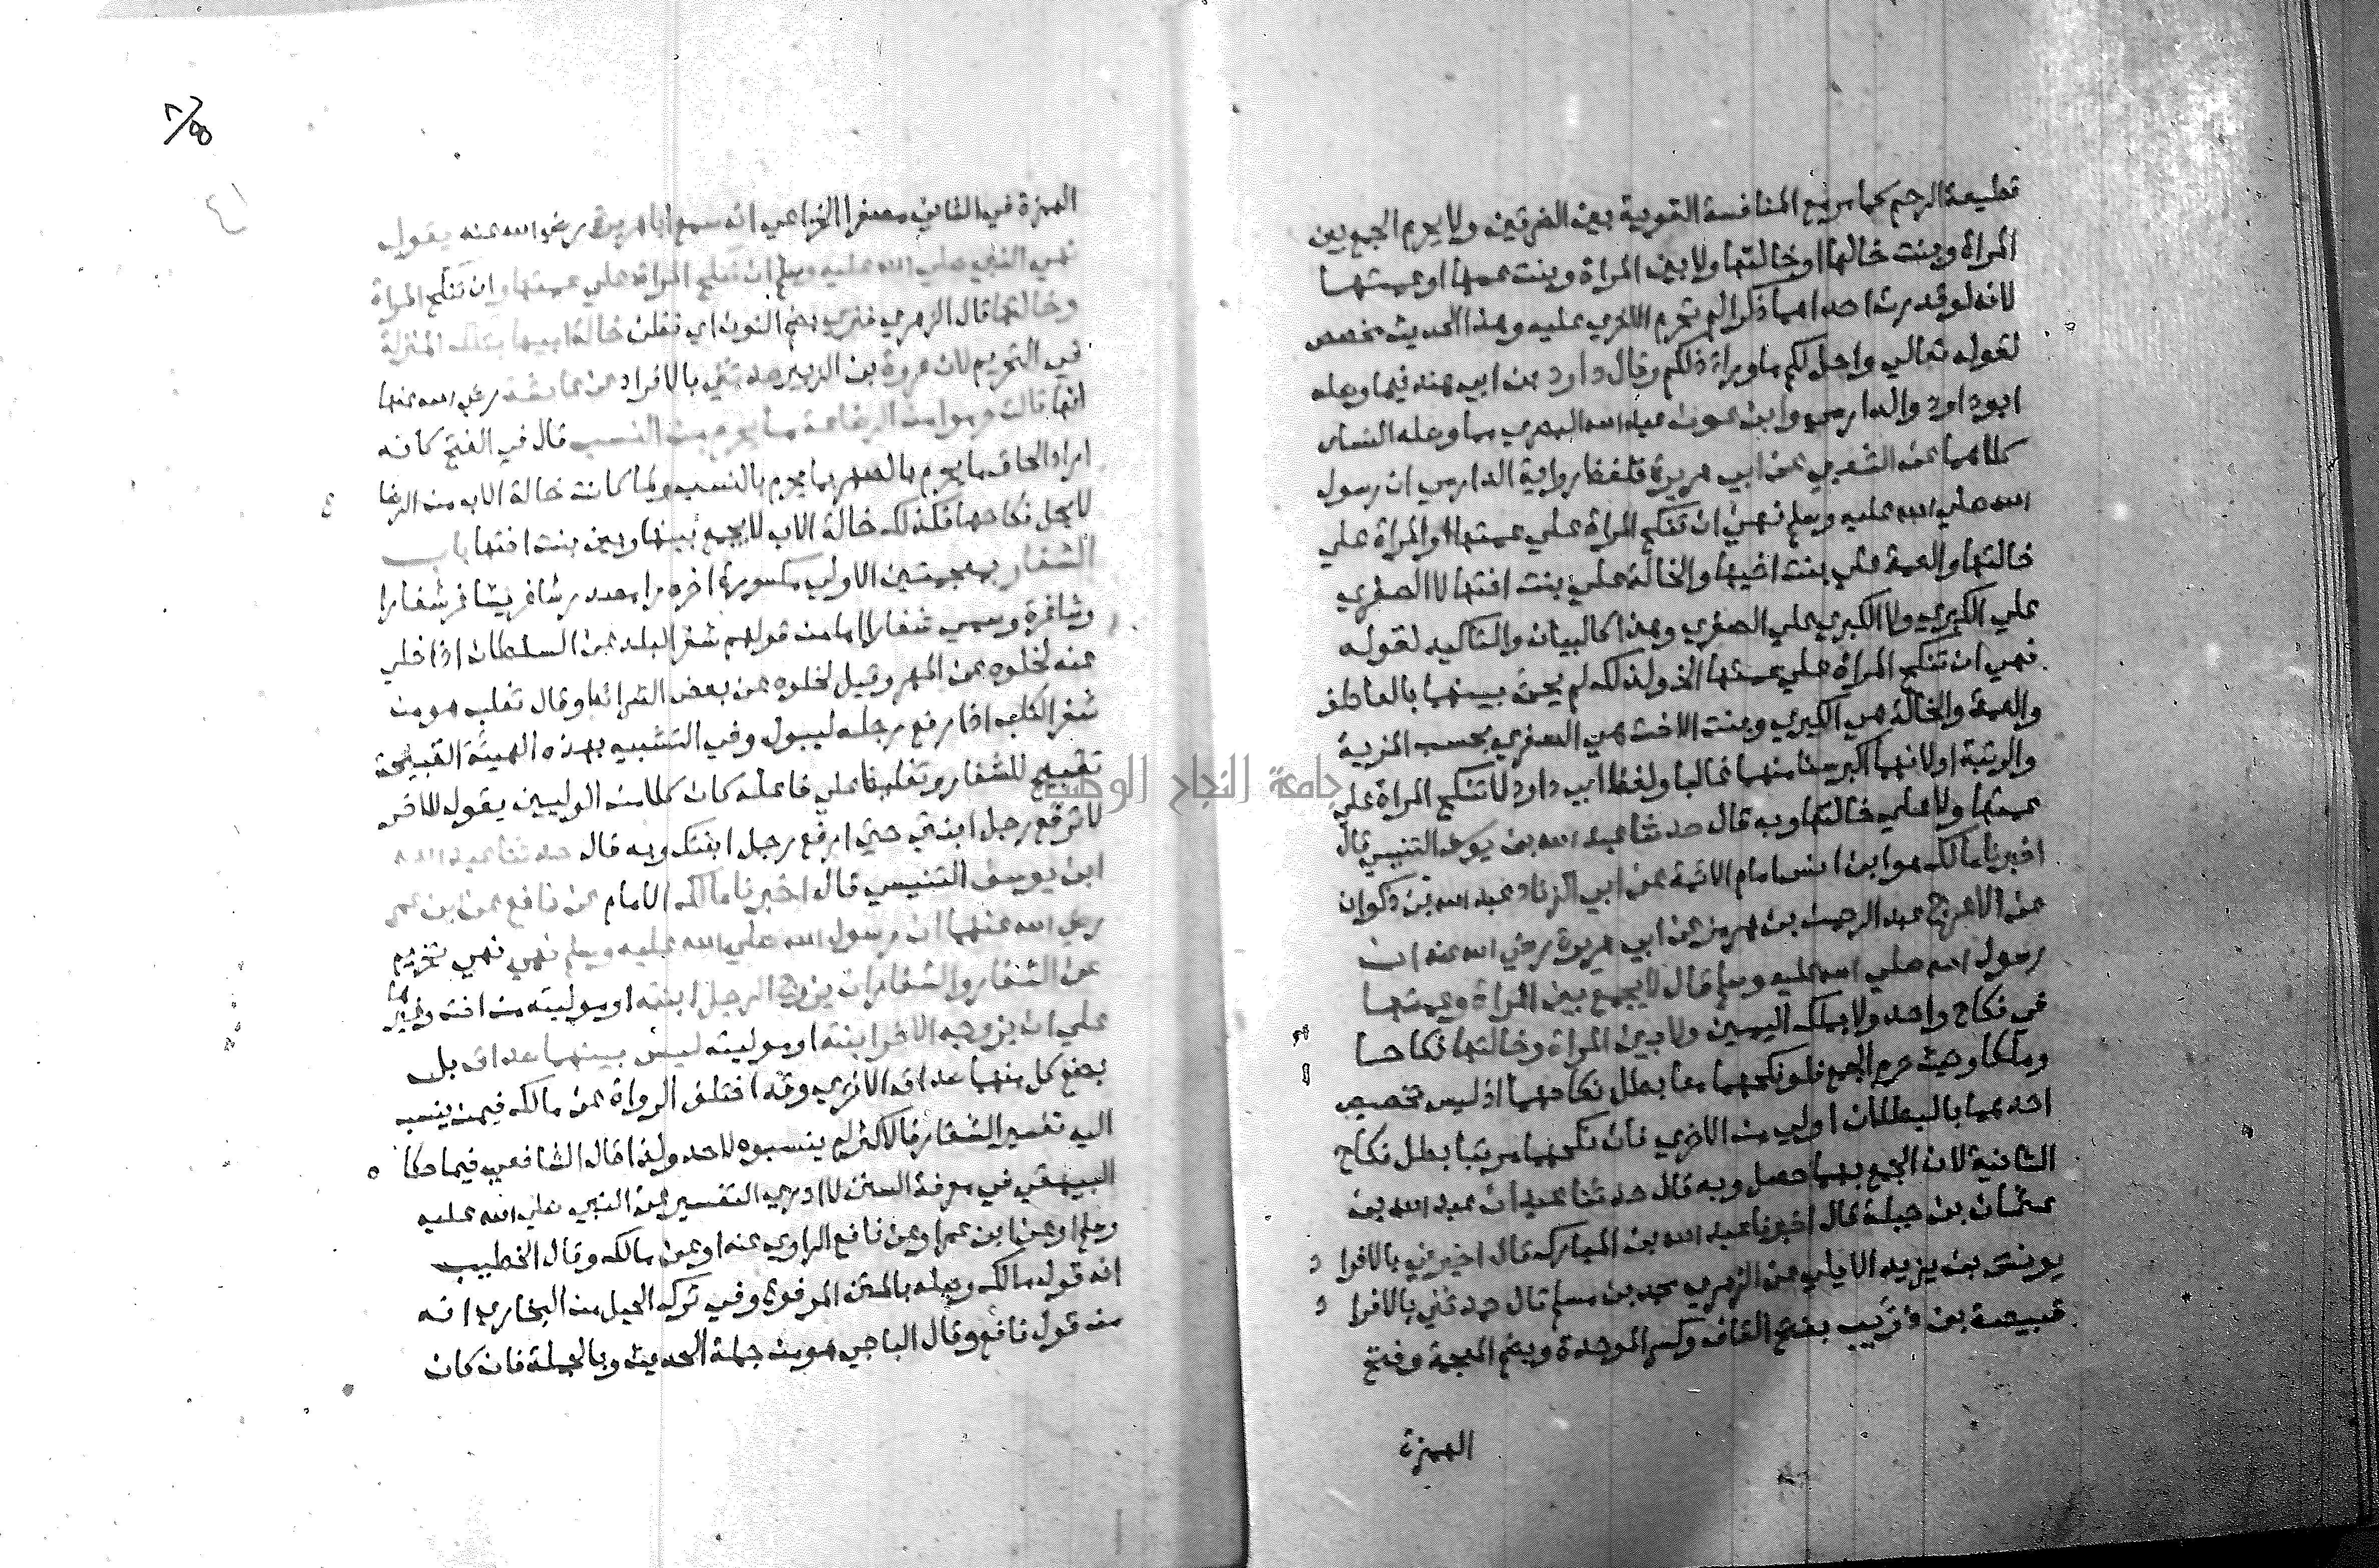 قطيعة الرحم كما مر مع المنافسة القوية بين الضرتين ولا يحرم الجمع بين
المراة وبنت خالها او خالتها ولا بين المراة وبنت عمها او عمتها
لانه لو قدرت احداهما ذكرا لم تحرم الاخري عليه وهذا الحديث مخصص
لقوله تعالي واحل لكم ما وراء ذلكم وقال داود بن ابي هند فيما وصله
ابو داود والدارمي وابن عون عبد الله البصري مما وصله النساي
كلاهما عن الشعبي عن ابي هريرة فلفظ رواية الدارمي ان رسول
الله صلي الله عليه وسلم نهي ان تنكح المراة علي عمتها او المراة علي
خالتها والعمة علي بنت اخيها والخالة علي بنت اختها لا الصغري
علي الكبري ولا الكبري علي الصغري وهذا كالبيان والتاكيد لقوله
نهي ان تنكح المراة علي عمتها الخ ولذلك لم يجئ بينهما بالعاطف
والعمة والخالة هي الكبري وبنت الاخت هي الصغري بحسب المزية
والرتبة او لانهما اكبر سنا منهما غالبا ولفظ ابي داود لا تنكح المراة علي
عمتها ولا علي خالتها وبه قال حدثنا عبد الله بن يوسف التنيسي قال
اخبرنا مالك هو ابن انس امام الائمة عن ابي الزناد عبد الله بن ذكوان
عن الاعرج عبد الرحمن بن هرمز عن ابي هريرة رضي الله عنه ان
رسول الله صلي الله عليه وسلم قال لا يجمع بين المراة وعمتها
في نكاح واحد ولا بملك اليمين ولا بين المراة وخالتها نكاحا
وملكا وحيث حرم الجمع فلو نكحهما معا بطل نكاحهما اذ ليس تخصيص
احدهما بالبطلان اولي من الاخري فان نكحهما مرتبا بطل نكاح
الثانية لان الجمع بها حصل وبه قال حدثنا عبدان عبد الله بن
عثمان بن جبلة قال اخبرنا عبد الله بن المبارك قال اخبرني بالافرا د
يونس بن يزيد الايلي عن الزهري محمد بن مسلم قال حدثني بالافرا د
قبيصة بن ذؤيب بفتح القاف وكسر الموحدة وبضم المعجمة وفتح
الهمزة
الهمزة في الثاني مصغرا الخزاعي انه سمع ابا هريرة رضي الله عنه يقول
نهي النبي صلي الله عليه وسلم ان تنكح المراة علي عمتها وان تنكح المراة
وخالتها قال الزهري فنري بضم النون اي نظن خالة ابيها بتلك المنزلة
في التحريم لان عروة بن الزبير حدثني بالافراد عن عائشة رضي الله عنها
انها قالت حرموا من الرضاعة ما يحرم من النسب قال في الفتح كانه
اراد الحاق ما يحرم بالصهر بما يحرم بالنسب ولما كانت خالة الاب من الرضا ع
لا يحل نكاحها فكذلك خالة الاب لا يجمع بينها وبين بنت اختها باب
الشغار بمعجمتين الاولي مكسورة اخره را مصدر شاغر يشاغر شغارا
وشاغرة وسمي شغارا اما من قولهم شغر البلد عن السلطان اذا خلي
عنه لخلوه عن المهر وقيل لخلوه عن بعض الشرائط وقال ثعلب هو من
شغر الكلب اذا رفع رجله ليبول وفي التشبيه بهذه الهيئة القبيحة
تقبيح للشغار وتغليظ علي فاعله كان كلا من الوليين يقول للاخر
لا ترفع رجل ابنتي حتي ارفع رجل ابنتك وبه قال حدثنا عبد الله
ابن يوسف التنيسي قال اخبرنا مالك الامام عن نافع عن ابن عمر
رضي الله عنهما ان رسول الله صلي الله عليه وسلم نهي نهي تحريم
عن الشغار والشغار ان يزوج الرجل ابنته او موليته من اخت وغيرها
علي ان يزوجه الاخر ابنته او موليته ليس بينهما صداق بل
بضع كل منهما صداق الاخري وقد اختلف الرواة عن مالك فيمن ينسب
اليه تفسير الشغار فالاكثر لم ينسبوه لاحد ولذا قال الشافعي فيما حكا ه
البيهقي في معرفة السنن لا ادري التفسير عن النبي صلي الله عليه
وسلم او عن ابن عمر او عن نافع الراوي عنه او عن مالك وقال الخطيب
انه قول مالك وصله بالمتن المرفوع وفي ترك الحيل من البخاري انه
من قول نافع وقال الباجي هو من جملة الحديث وبالجملة فان كان
جامعة النجاح الوطنية